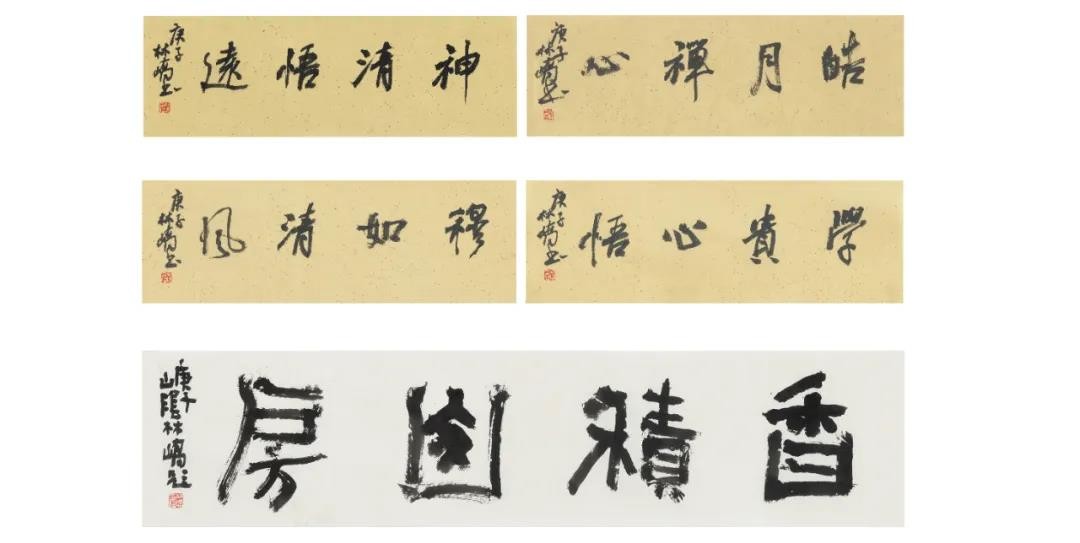 神清悟遠
庚子
林嶠書
皓月禪心
庚子
林嶠書
穆如清風
庚子
林嶠書
學貴心悟
庚子
林嶠書
香積房
庚子
林嶠題